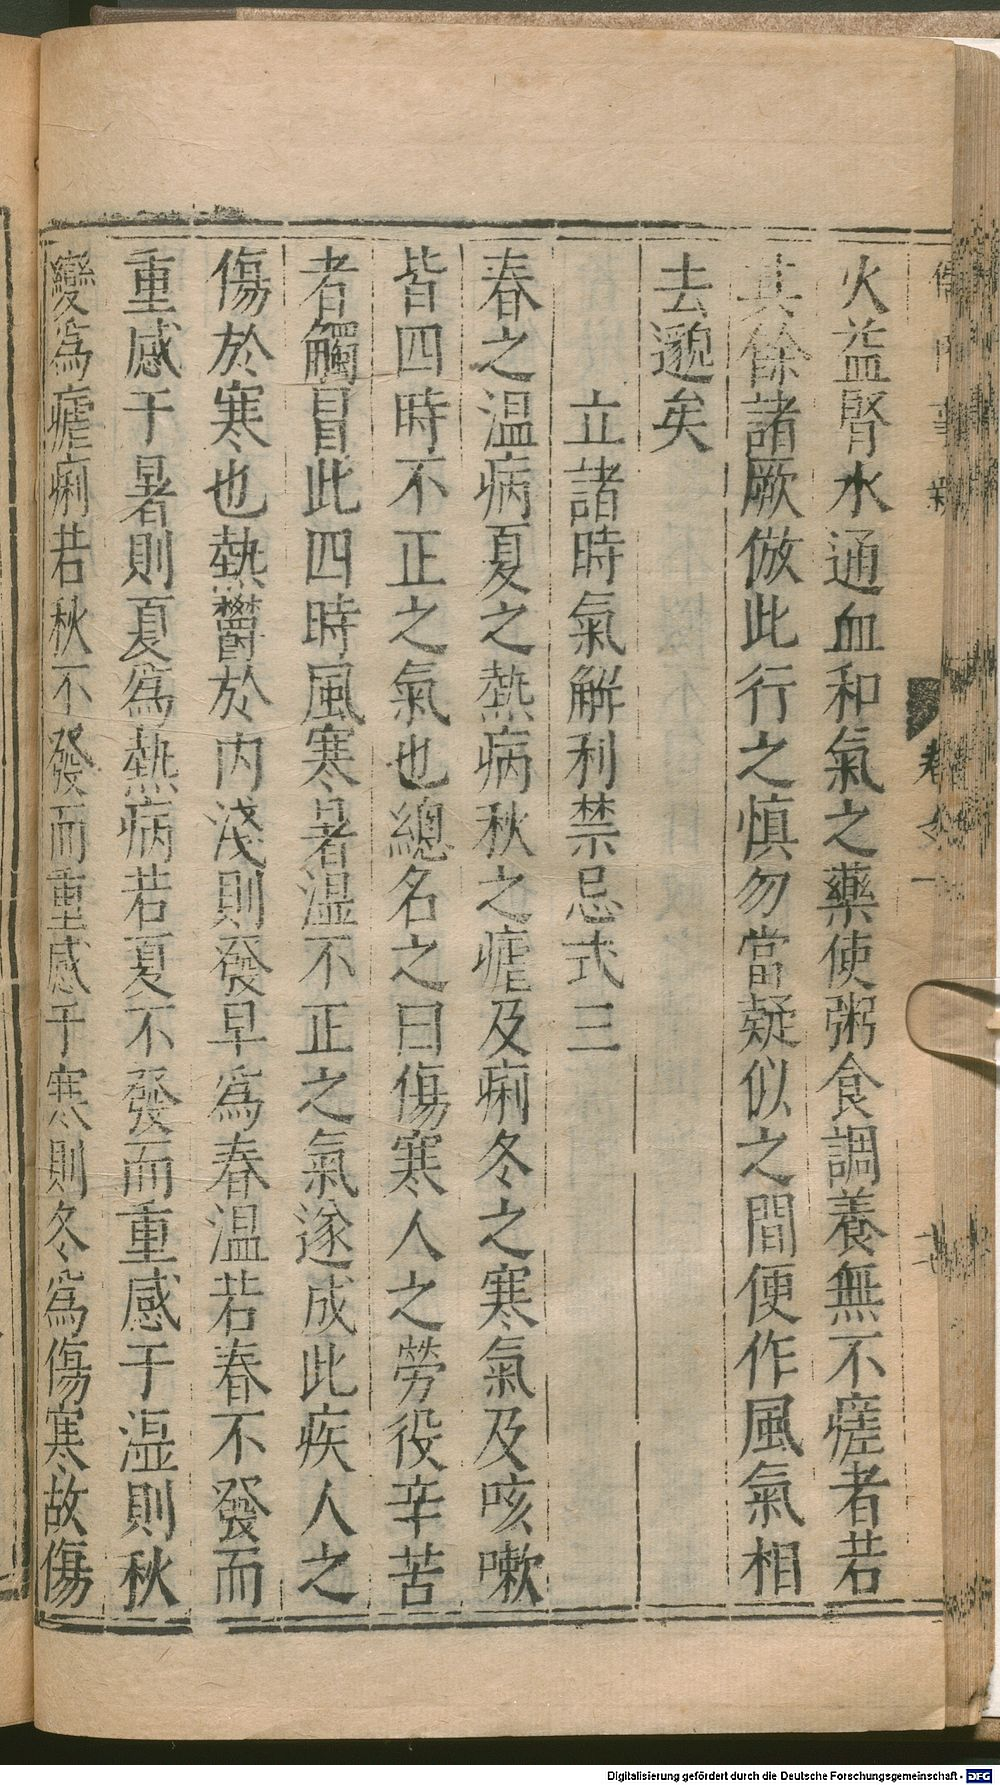 火益腎水通血和氣之藥使粥食調養無不瘥者若
其餘諸厥倣此行之愼勿當疑似之間便作風氣相
去邈矣
立諸時氣解利禁忌式三
春之温病夏之熱病秋之瘧及痢冬之寒氣及咳嗽
皆四時不正之氣也總名之曰傷寒人之勞役辛苦
者觸冒此四時風寒暑濕不正之氣遂成此疾人之
傷於寒也熱鬱於内淺則發早爲春温若春不發而
重感于暑則夏爲熱病若夏不發而重感于濕則秋
變爲瘧痢若秋不發而重感于寒則冬爲傷寒故傷
Digitalisierung gefördert durch die Deutsche Forschungsgemeinschaft - DFG